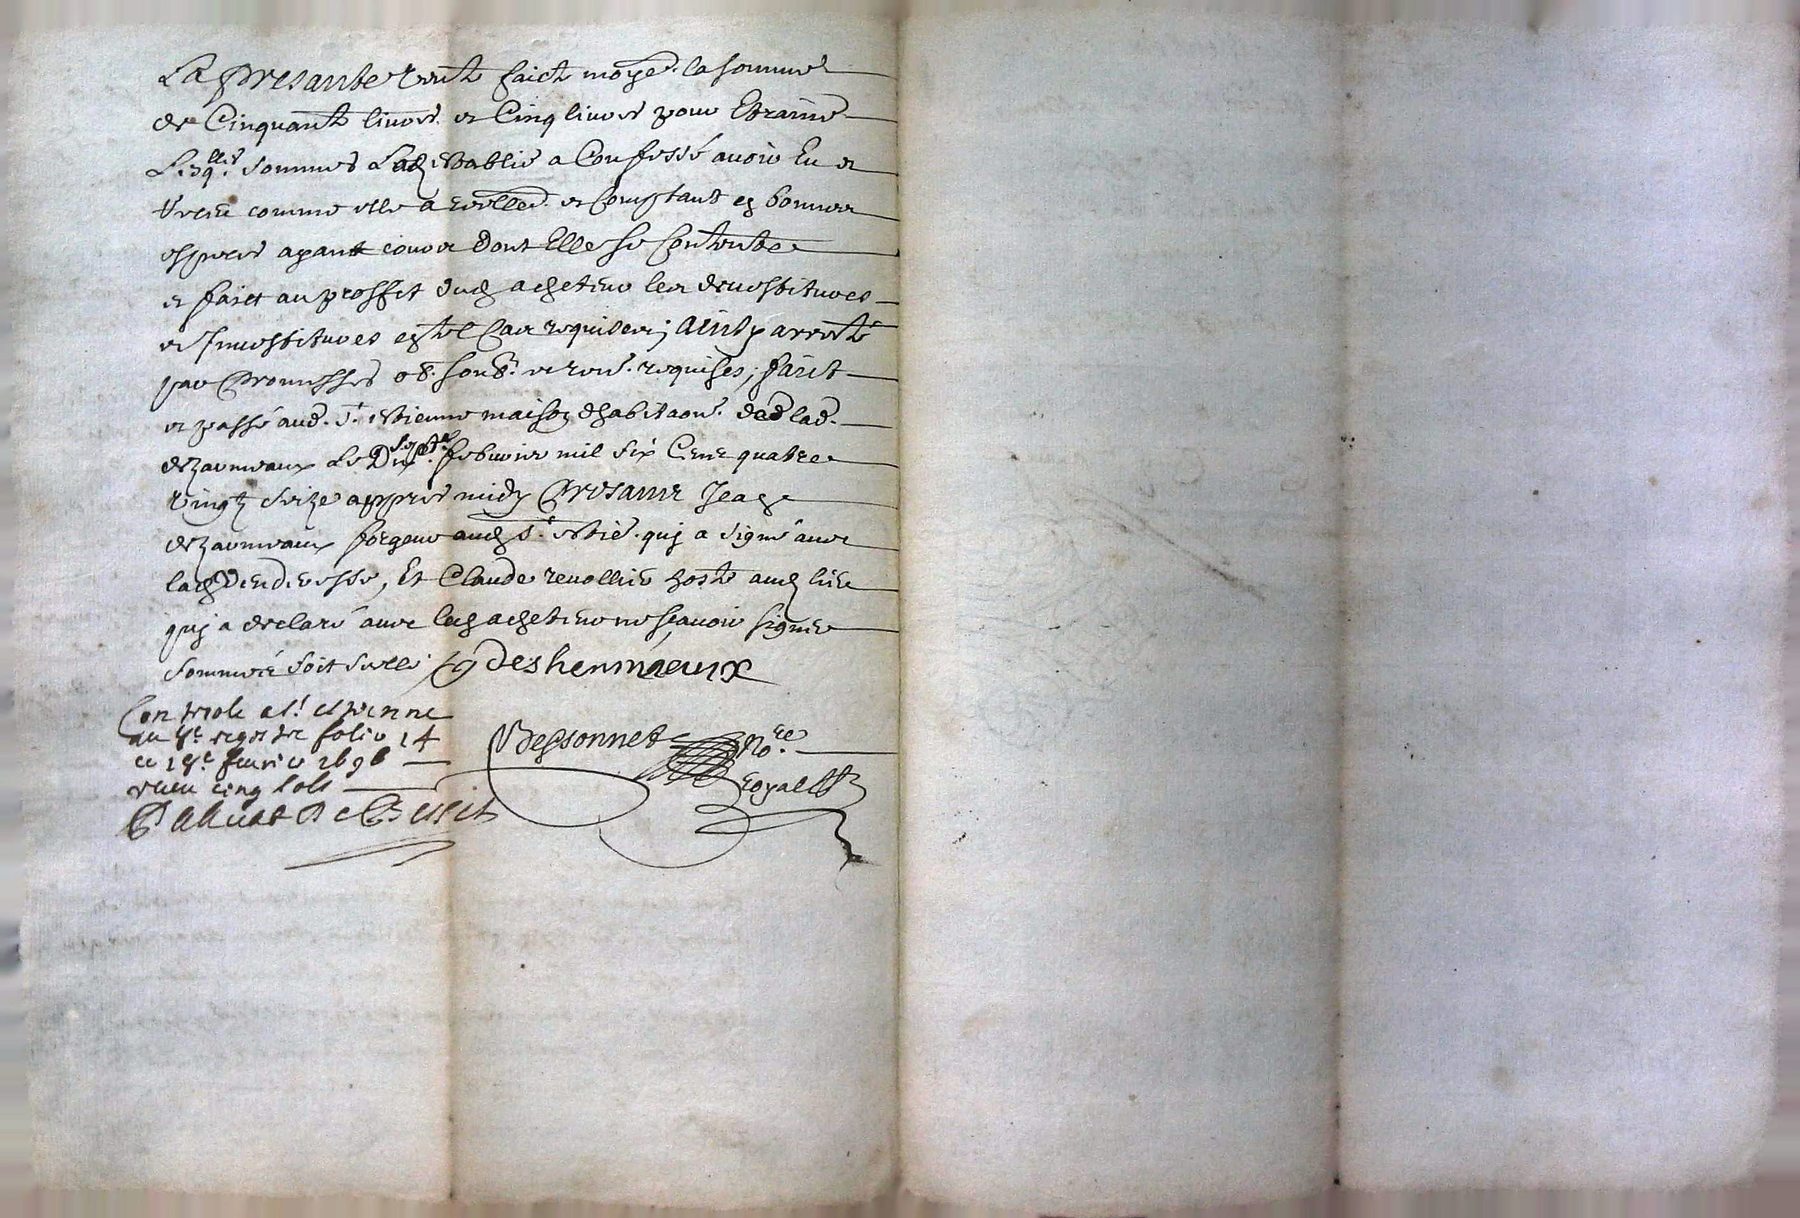 La presante vente faict moye. la somme
de Cinquante livres et Cinq livres pour Etraine
Lesq.lles sommes Lad establie a Confessé avoir Eu et
receu comme elle a reellem. et Comptant en bonnes
espèces ayant cours dont Elle se Contente
et faict au proffit dud achepteur les devestitures
et Investitures en tel Cas requises; ainsy arresté
par Promesses ob. soub. et ren. requises; faict
et passé aud. St. estienne maison dhabitaon. de lad.
deharmeaux Le Dix sept.e febvrier mil six Cent quatre
vingtz seize appres midy Presant Jean
deharmeaux forgeur aud St. estie. quj a signé avec
lad Venderesse, Et Claude revollier hoste aud lieu
quj a declaré avec led achepteur ne sçavoir signer
sommés soit signé deshermeaux
Controlé a St. estienne
au 4e. registre folio 14
ce 18e. fevrier 1696
receu cinq sols
Bessonnet No.re
royal